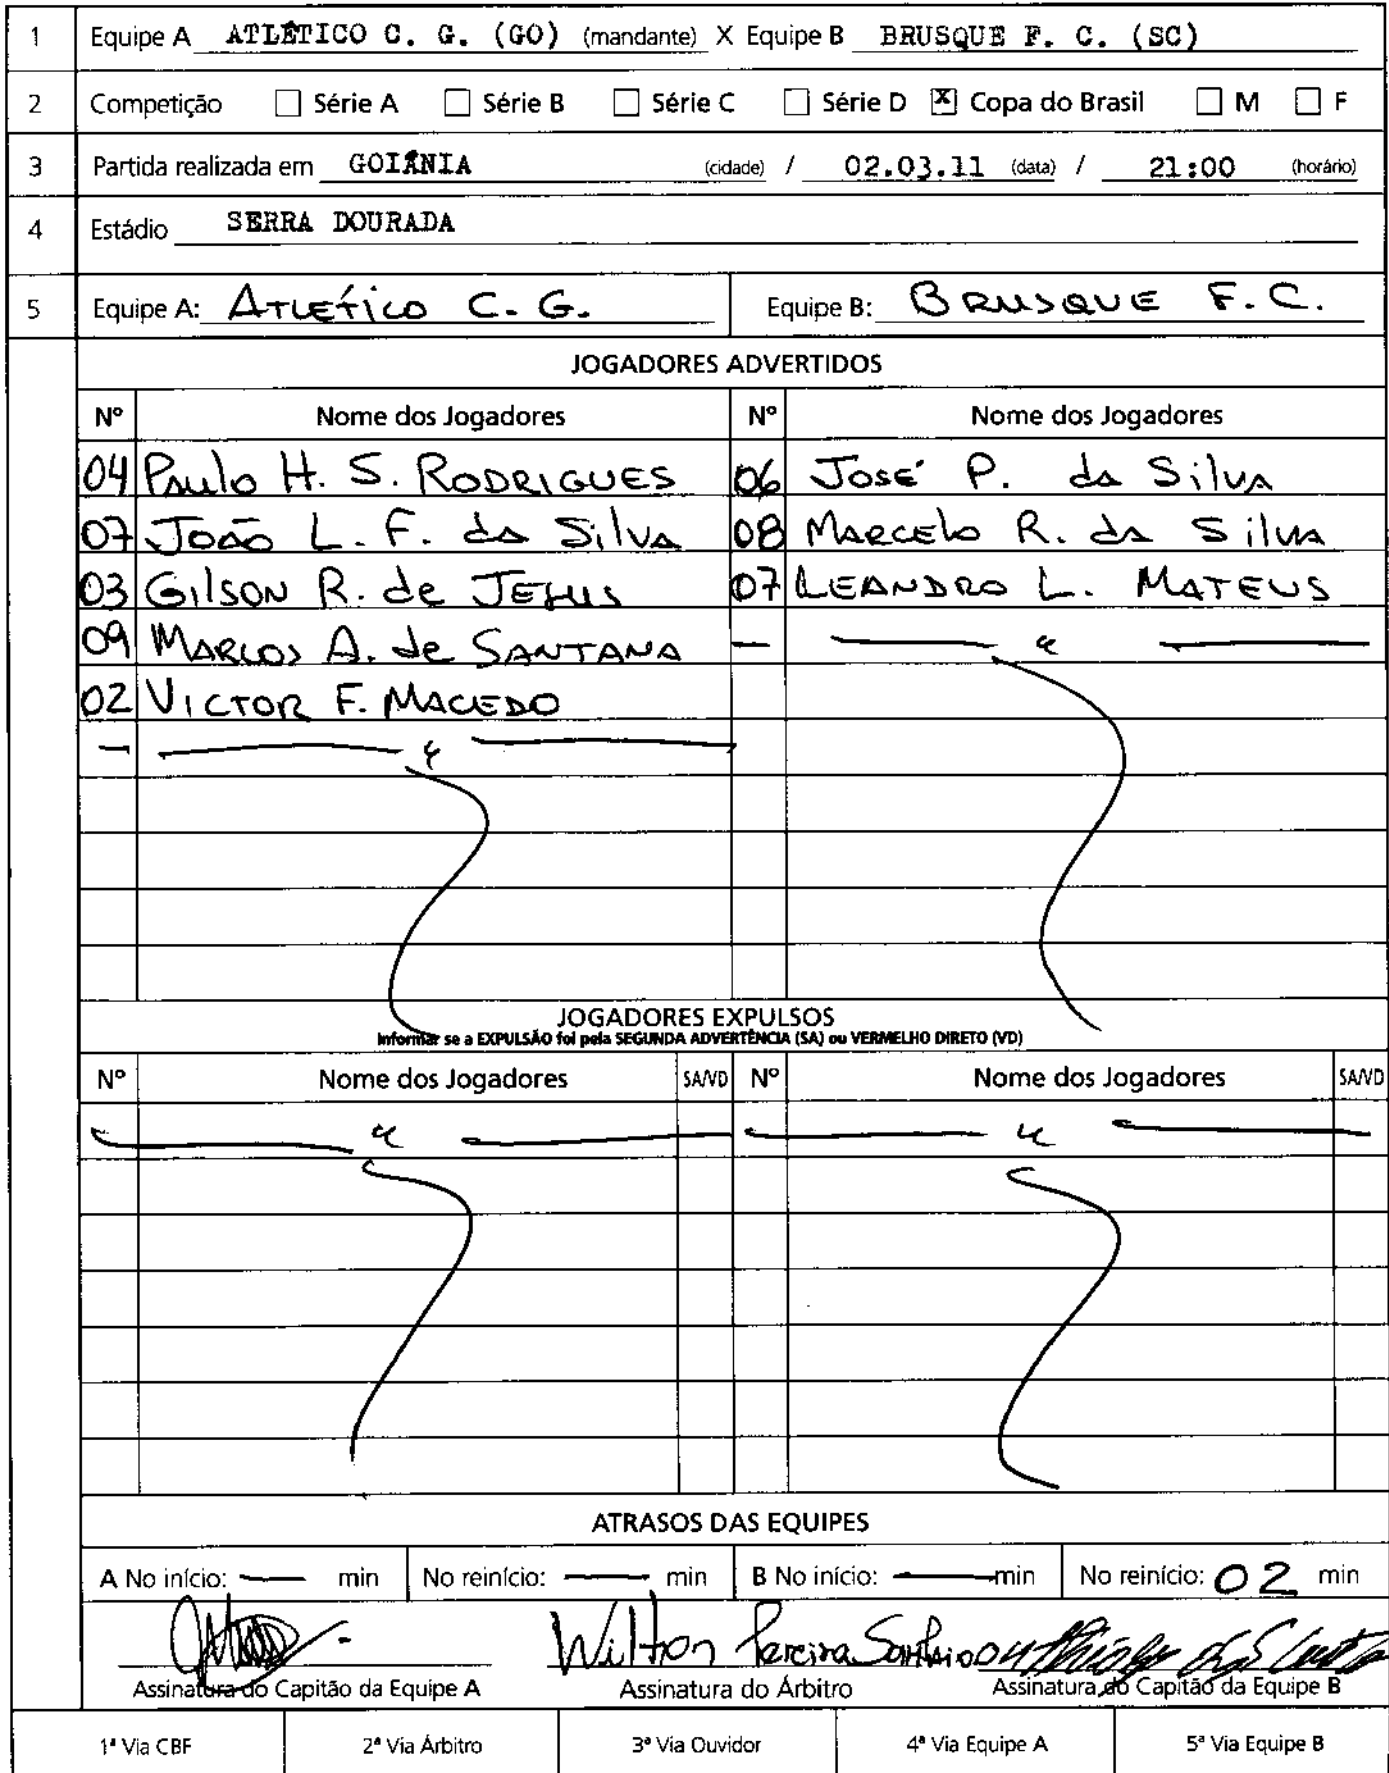 1 Equipe A ATLÉTICO C. G. (GO) (mandante) X Equipe B BRUSQUE F. C. (SC)
2 Competição Série A Série B Série C Série D X Copa do Brasil M F
3 Partida realizada em GOIÂNIA (cidade) / 02.03.11 (data) / 21:00 (horário)
4 Estádio SERRA DOURADA
5 Equipe A: ATLÉTICO C. G. Equipe B: BRUSQUE F.C.
JOGADORES ADVERTIDOS
Nº Nome dos Jogadores Nº Nome dos Jogadores
04 PAulo H. S. RODRIGUES 06 JOSÉ P. da SilvA
07 JOÃO L. F. da SilvA 08 MARCElo R. da SilvA
03 GilSON R. de JESUS 07 LEANDRO L. MATEUS
09 MARCOS A. de SANTANA
02 VICTOR F. MACEDO
JOGADORES EXPULSOS
Informar se a EXPULSÃO foi pela SEGUNDA ADVERTÊNCIA (SA) ou VERMELHO DIRETO (VD)
Nº Nome dos Jogadores SA/VD Nº Nome dos Jogadores SA/VD
ATRASOS DAS EQUIPES
A No início: — min No reinício: — min B No início: — min No reinício: 02 min
Wilton Pereira Sampaio
Assinatura do Capitão da Equipe A Assinatura do Árbitro Assinatura do Capitão da Equipe B
1ª Via CBF 2ª Via Árbitro 3ª Via Ouvidor 4ª Via Equipe A 5ª Via Equipe B